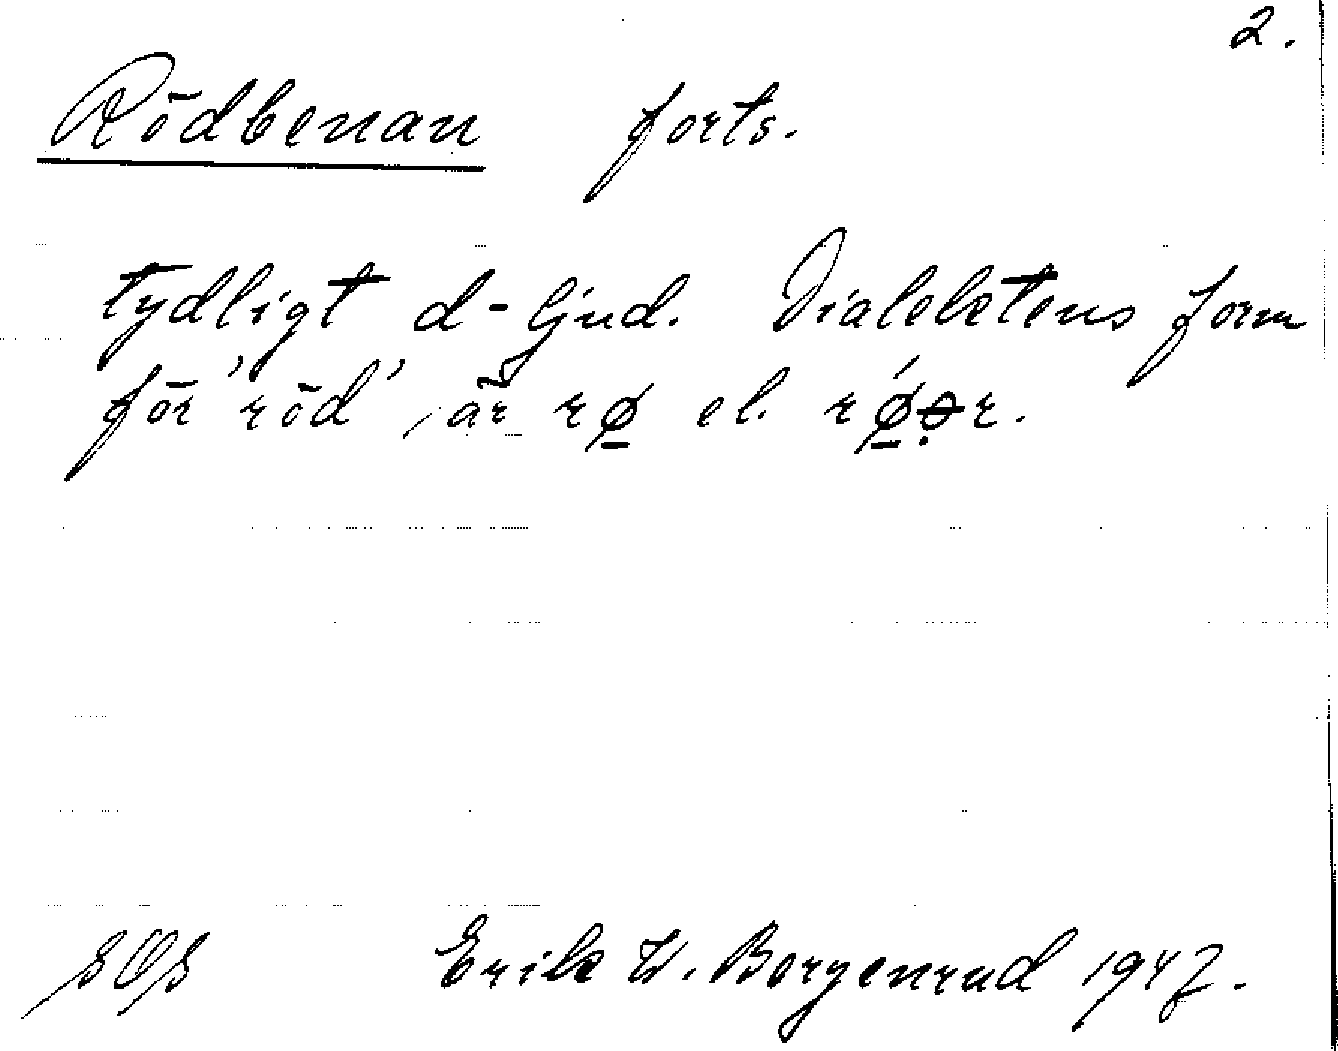 2.
Rödbenan forts.
tydligt d-ljud. Dialektens form
för 'röd', är rø̱ el. rǿ̱ər.
Erik W. Borgenrud 1947.